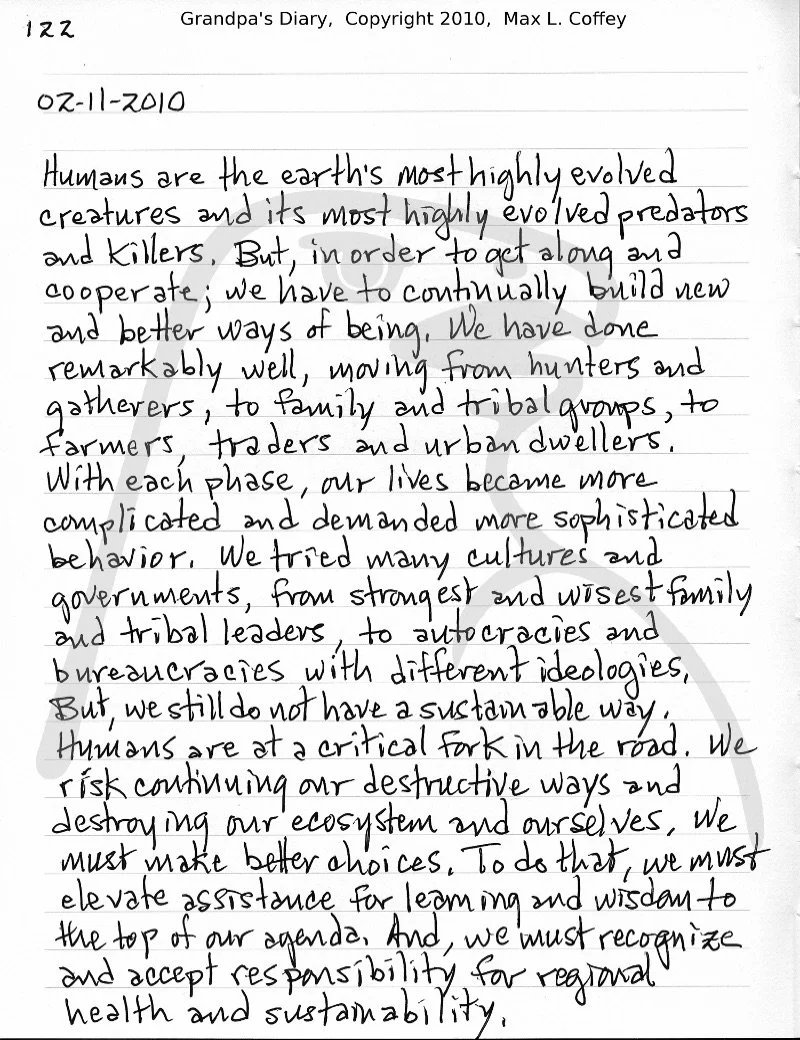 Grandpa's Diary, Copyright 2010, Max L. Coffey
122
02-11-2010
Humans are the earth's most highly evolved
creatures and its most highly evolved predators
and killers. But, in order to get along and
cooperate; we have to continually build new
and better ways of being. We have done
remarkably well, moving from hunters and
gatherers, to family and tribal groups, to
farmers, traders and urban dwellers.
With each phase, our lives became more
complicated and demanded more sophisticated
behavior. We tried many cultures and
governments, from strongest and wisest family
and tribal leaders, to autocracies and
bureaucracies with different ideologies,
But, we still do not have a sustainable way.
Humans are at a critical fork in the road. We
risk continuing our destructive ways and
destroying our ecosystem and ourselves. We
must make better choices. To do that, we must
elevate assistance for learning and wisdom to
the top of our agenda. And, we must recognize
and accept responsibility for regional
health and sustainability.